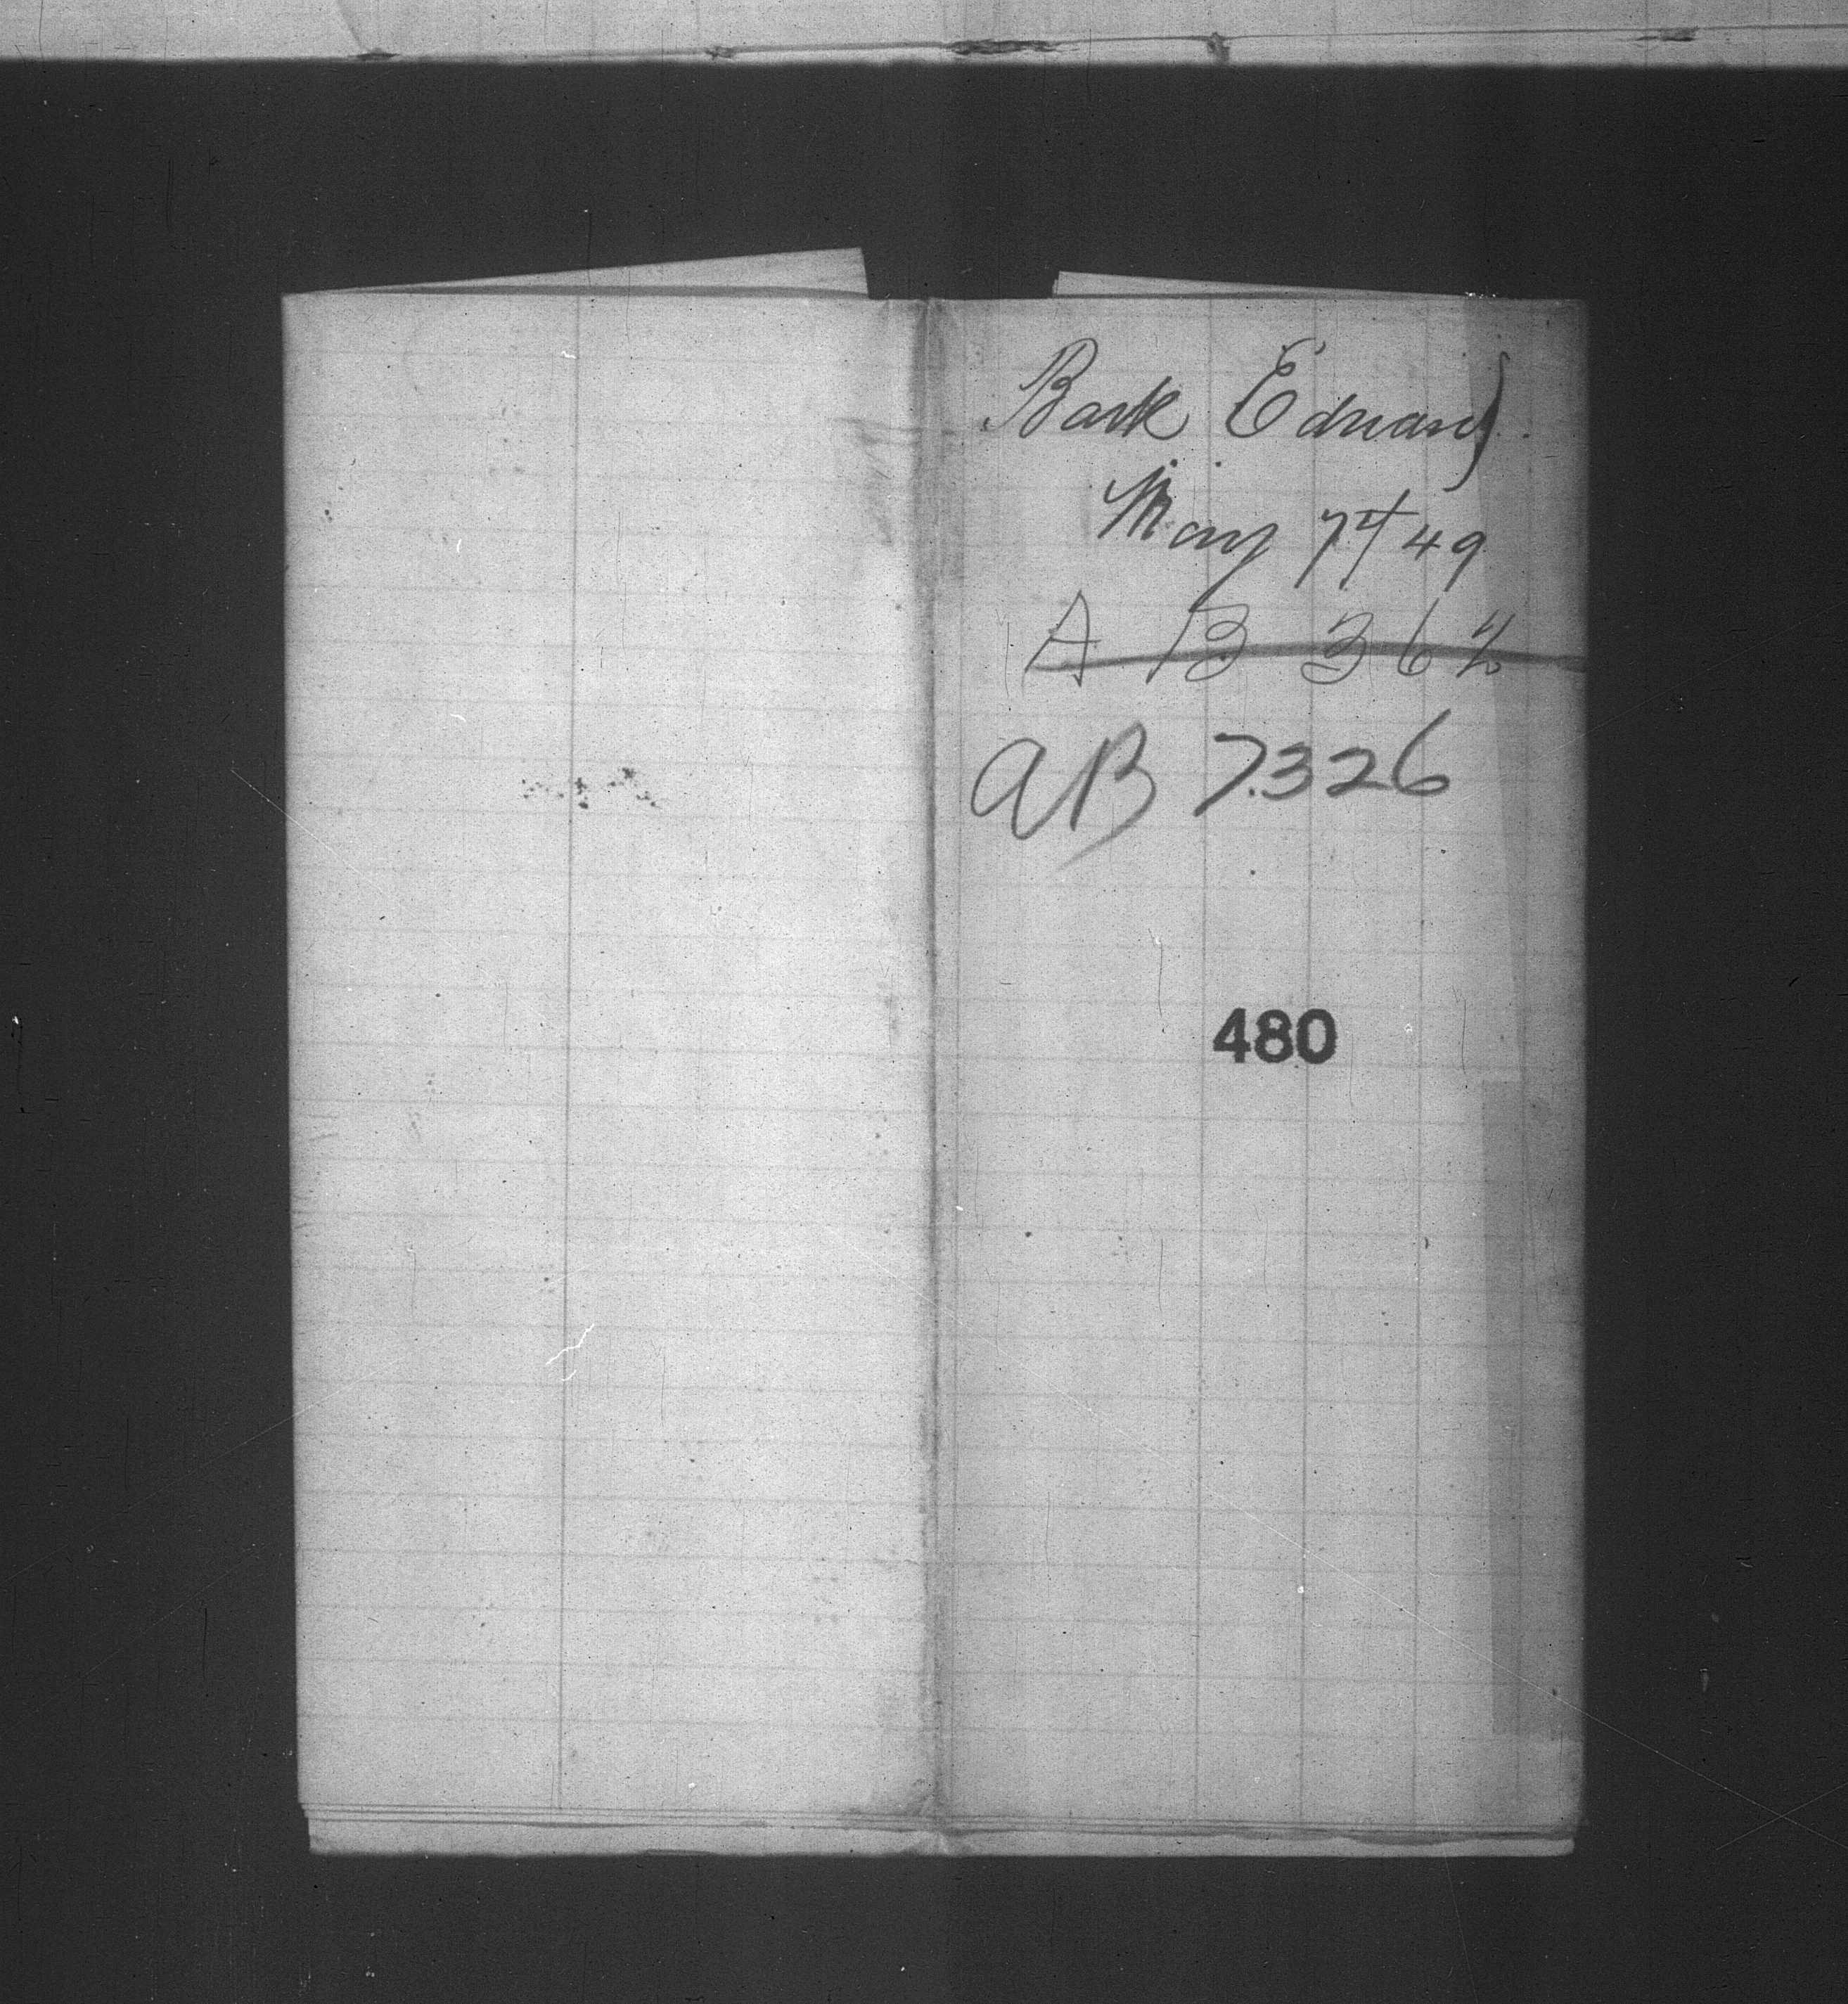 Bark Edward
May 7th 49
A B 362
AB 7326
480